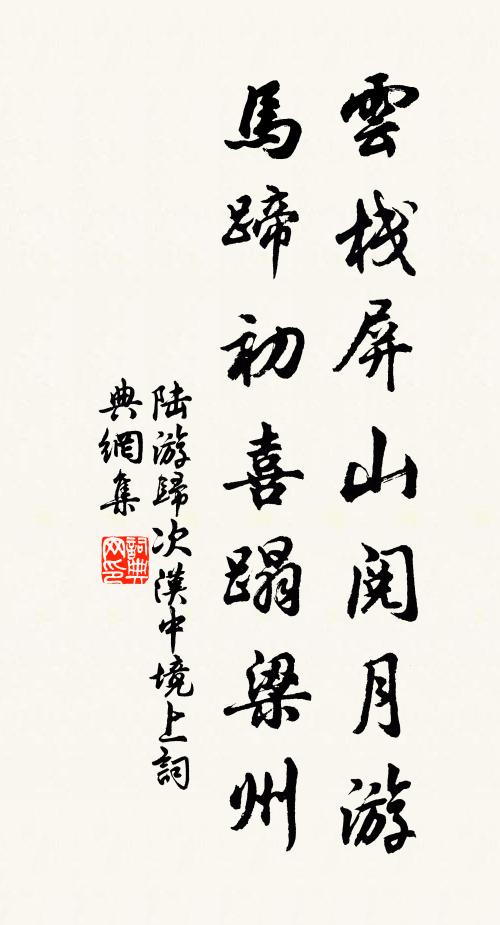 雲棧屏山閱月游
馬蹄初喜蹋梁州
陸游歸次漢中境上詞
典網集
詞典
网印